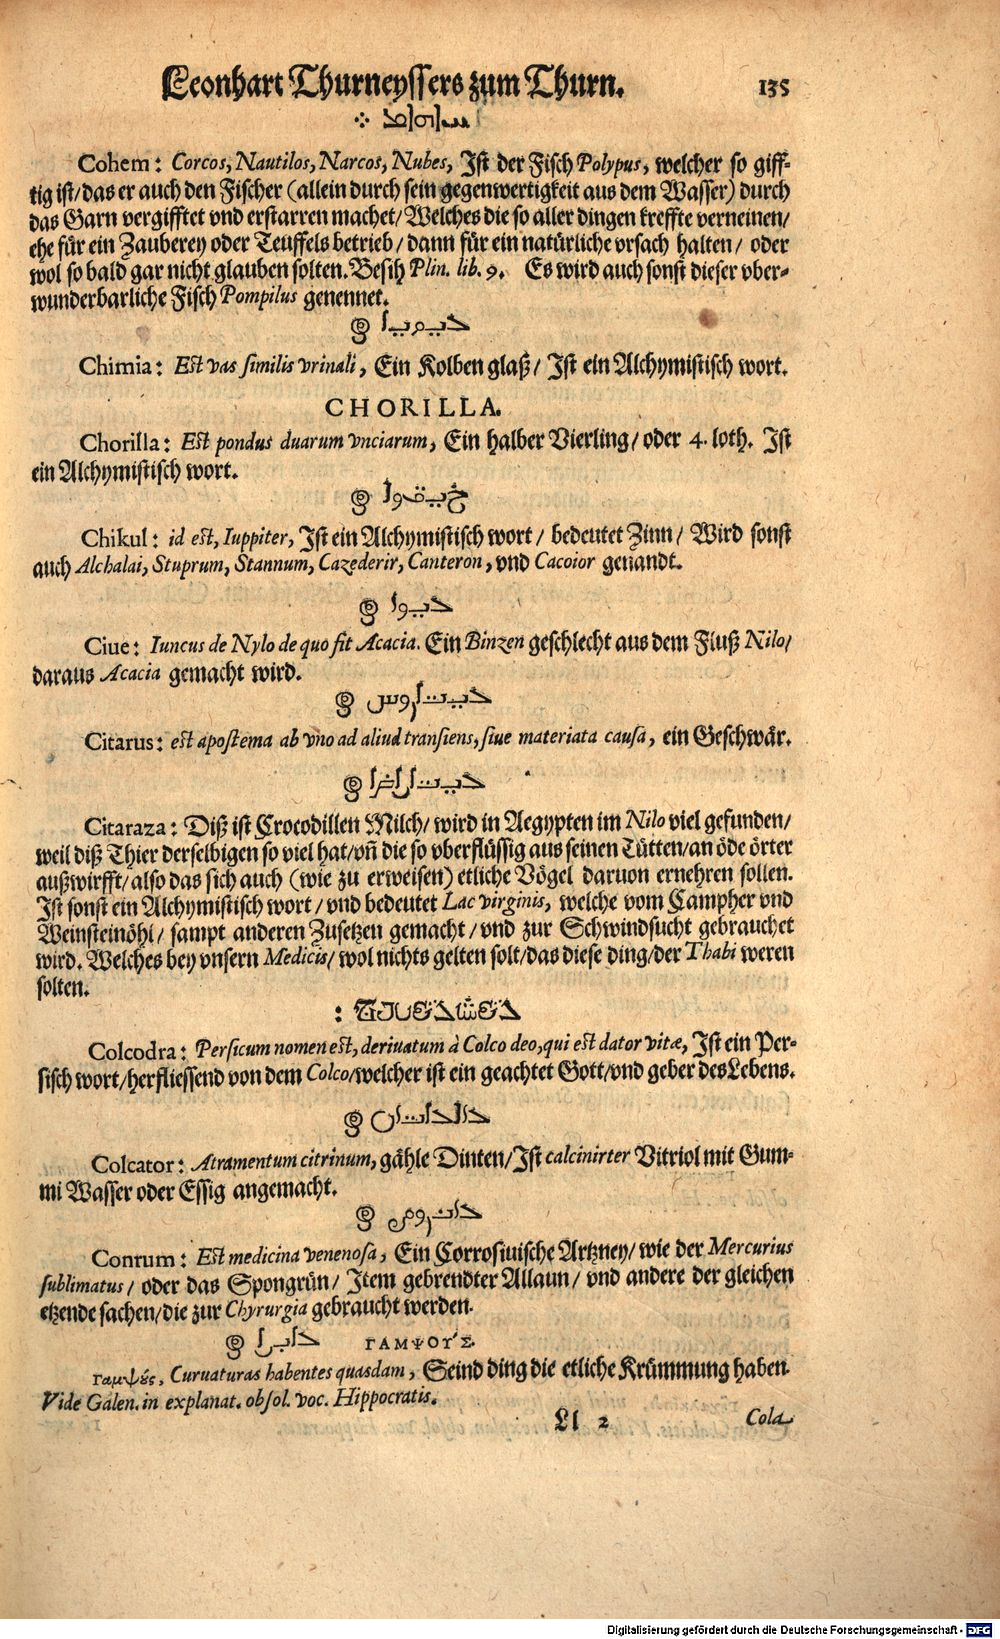 Leonhart Thurneyssers zum Thurn. 135
Cohem: Corcos, Nautilos, Narcos, Nubes, Ist der Fisch Polypus, welcher so giff-
tig ist/das er auch den Fischer (allein durch sein gegenwertigkeit aus dem Wasser) durch
das Garn vergifftet vnd erstarren machet/ Welches die so aller dingen kreffte verneinen/
ehe für ein Zauberey oder Teuffels betrieb/ dann für ein natürliche vrsach halten/ oder
wol so bald gar nicht glauben solten. Besih Plin. lib. 9. Es wird auch sonst dieser vber-
wunderbarliche Fisch Pompilus genennet.
Chimia: Est vas similis vrinali, Ein Kolben glaß/ Ist ein Alchymistisch wort.
CHORILLA.
Chorilla: Est pondus duarum vnciarum, Ein halber Vierling/ oder 4. loth. Ist
ein Alchymistisch wort.
Chikul: id est, Iuppiter, Ist ein Alchymistisch wort/ bedeutet Zinn/ Wird sonst
auch Alchalai, Stuprum, Stannum, Cazederir, Canteron, vnd Cacoior genandt.
Ciue: Iuncus de Nylo de quo fit Acacia. Ein Binzen geschlecht aus dem Fluß Nilo/
daraus Acacia gemacht wird.
Citarus: est apostema ab vno ad aliud transiens, siue materiata causa, ein Geschwär.
Citaraza: Diß ist Crocodillen Milch/ wird in Aegypten im Nilo viel gefunden/
weil diß Thier derselbigen so viel hat/vñ die so vberflüssig aus seinen Tütten/an öde örter
außwirfft/also das sich auch (wie zu erweisen) etliche Vögel daruon ernehren sollen.
Ist sonst ein Alchymistisch wort/ vnd bedeutet Lac virginis, welche vom Campher vnd
Weinsteinöhl/ sampt anderen Zusetzen gemacht/ vnd zur Schwindsucht gebrauchet
wird. Welches bey vnsern Medicis/ wol nichts gelten solt/das diese ding/der Thabi weren
solten.
Colcodra: Persicum nomen est, deriuatum à Colco deo, qui est dator vitæ, Ist ein Per-
sisch wort/herfliessend von dem Colco/welcher ist ein geachtet Gott/vnd geber des Lebens.
Colcator: Atramentum citrinum, gähle Dinten/Ist calcinirter Vitriol mit Gum-
mi Wasser oder Essig angemacht.
Conrum: Est medicina venenosa, Ein Corrosiuische Artzney/ wie der Mercurius
sublimatus/ oder das Spongrün/ Item gebrendter Allaun/ vnd andere der gleichen
etzende sachen/die zur Chyrurgia gebraucht werden.
ΓΑΜΨΟΥΣ.
γαμψούς, Curuaturas habentes quasdam, Seind ding die etliche Krümmung haben
Vide Galen. in explanat. obsol. voc. Hippocratis.
Ll 2 Cola
Digitalisierung gefördert durch die Deutsche Forschungsgemeinschaft - DFG